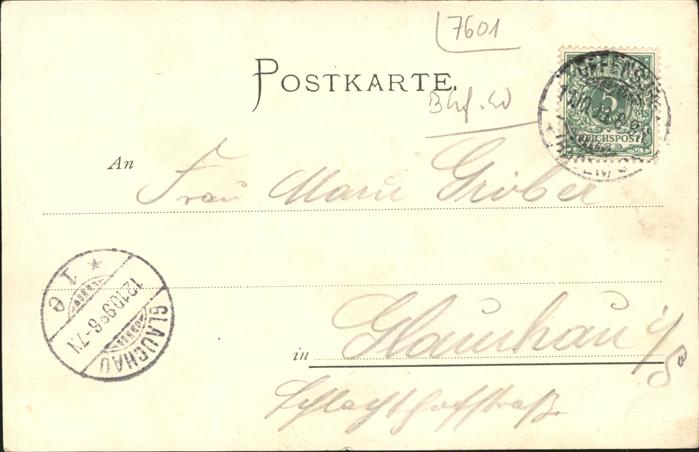 7601
POSTKARTE.
5
REICHSPOST
An Frau Marie Gröber
GLAUCHAU
12.10.98 6-7N
* 1 e
in Glauchau i/S
Schlachthofstraße